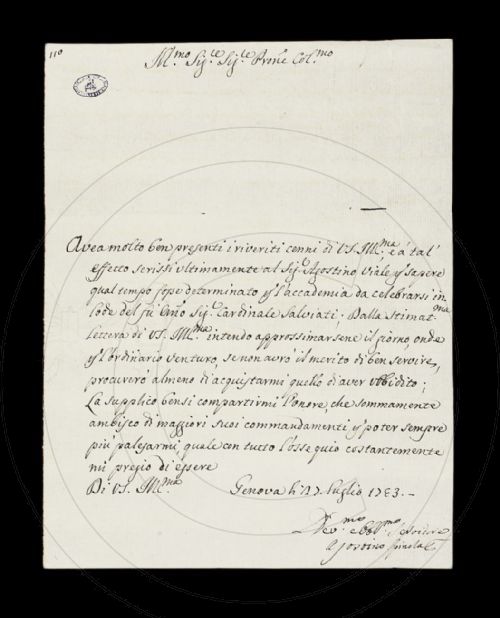 110
Ill.mo Sig.re Sig.re Prone Col.mo
Avea molto ben presenti i riveriti cenni di V.S. Ill.ma, e à tal'
effetto scrissi ultimamente al Sig.r Agostino Viale p sapere
qual tempo fosse determinato p l'accademia da celebrarsi in
lode del fù Sig.r Cardinale Salviati; Dalla Stimat.ma
lettera di V.S. Ill.ma intendo approssimarsene il giorno, onde
p l'ordinario venturo, se non avrò il merito di ben servire,
procurerò almeno di acquistarmi quello di aver ubbidito;
La supplico bensi compartirmi l'onore, che sommamente
ambisco di maggiori suoi commandamenti p poter sempre
più palesarmi, quale con tutto l'ossequio costantemente
mi pregio di essere
Di V.S. Ill.ma Genova li luglio 1733.
Dev.mo e Obb.mo Servitore
Agostino Spinola